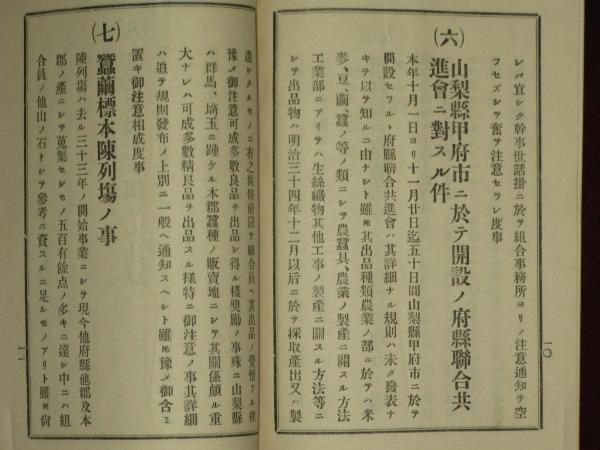 レバ宜シク幹事世話掛ニ於テ組合事務所ヨリノ注意通知ヲ空
フセズシテ奮テ注意セラレ度事
(六)
山梨縣甲府市ニ於テ開設ノ府縣聯合共
進會ニ對スル件
本年十月一日ヨリ十一月廿日迄五十日間山梨縣甲府市ニ於テ
開設セラル、府縣聯合共進會ハ其詳細ナル規則ハ未タ發表ナ
キヲ以テ知ルニ由ナシト雖𪜈其出品種類農業ノ部ニ於テハ米
麥、豆、繭、蠶ノ等ノ類ニシテ農蠶具、農業ノ製產ニ關スル方法
工業部ニアリテハ生絲織物其他工事ノ製產ニ關スル方法等ニ
シテ出品物ハ明治三十四年十二月以后ニ於テ採取產出又ハ製
一〇
造シタルモノニ有之候條前以テ組合員ヘ其出品ノ覺悟アル樣
豫メ御注意可成多數良品ヲ出品シ得ル樣獎勵ノ事殊ニ山梨縣
ハ群馬、埼玉ニ踵ケル本郡蠶種ノ販賣地ニシテ其關係頗ル重
大ナレハ可成多數精良品ヲ出品スル樣特ニ御注意ノ事其詳細
ハ追テ規則發布ノ上別ニ一般ヘ通知スヘシト雖𪜈豫メ御含ミ
置キ御注意相成度事
(七)
蠶繭標本陳列塲ノ事
陳列塲ハ去ル三十三年ノ開始事業ニシテ現今他府縣他郡及本
郡ノ產ニシテ蒐集セシモノ五百有餘点ノ多キニ達シ中ニハ組
合員ノ他山ノ石トシテ參考ニ資スルニ足ルモノアリト雖𪜈尙
一一